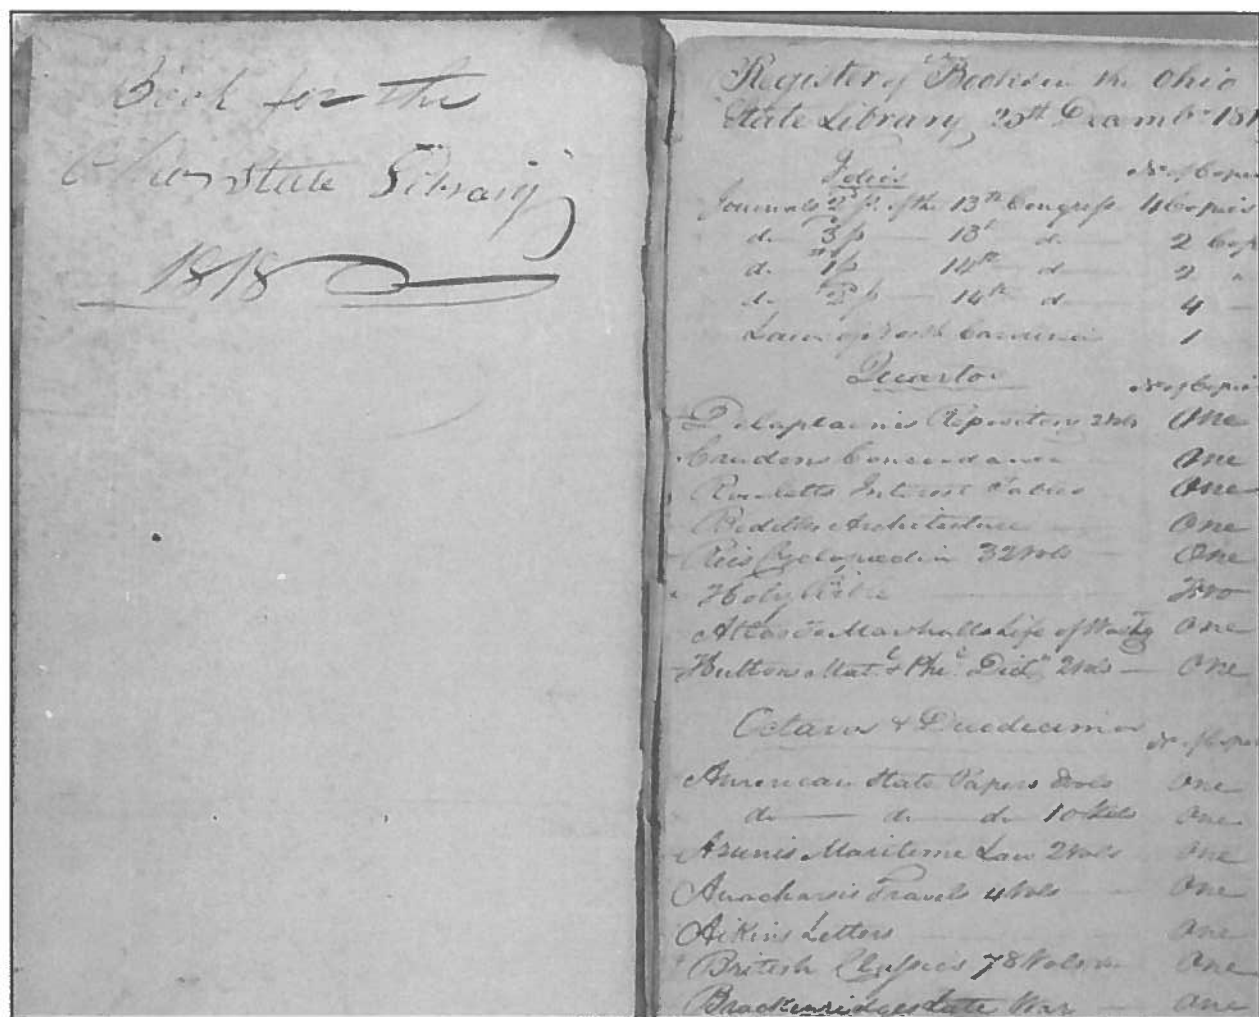 Book for the
Ohio State Library
1818
Register of Books in the Ohio
State Library, 25th Decembr 181
Folios
No. of Copies
Journals 2d Ss. of the 13th Congress 4 Copies
do 3 Ss 13th do 2 Cop
do 1 Ss 14th do 2 "
do 2 Ss 14th do 4
Laws of North Carolina 1
Quartos
No of Copies
Delaplaines Repository 2 Vols One
Crudens Concordance One
Rowletts Interest Tables One
Biddles Architecture One
Rees Cyclopaedia 32 Vols One
Holy Bible Two
Atlas to Marshalls Life of Washg One
Huttons Matl & Phl Dicty 2 Vols One
Octavos & Duodecimos
No. of Copies
American State Papers Vols One
do do do 10 Vols One
Azunis Maritime Law 2 Vols One
Anacharsis Travels 4 Vols One
Aikins Letters One
British Classics 78 Volums One
Brackenridges Late War One